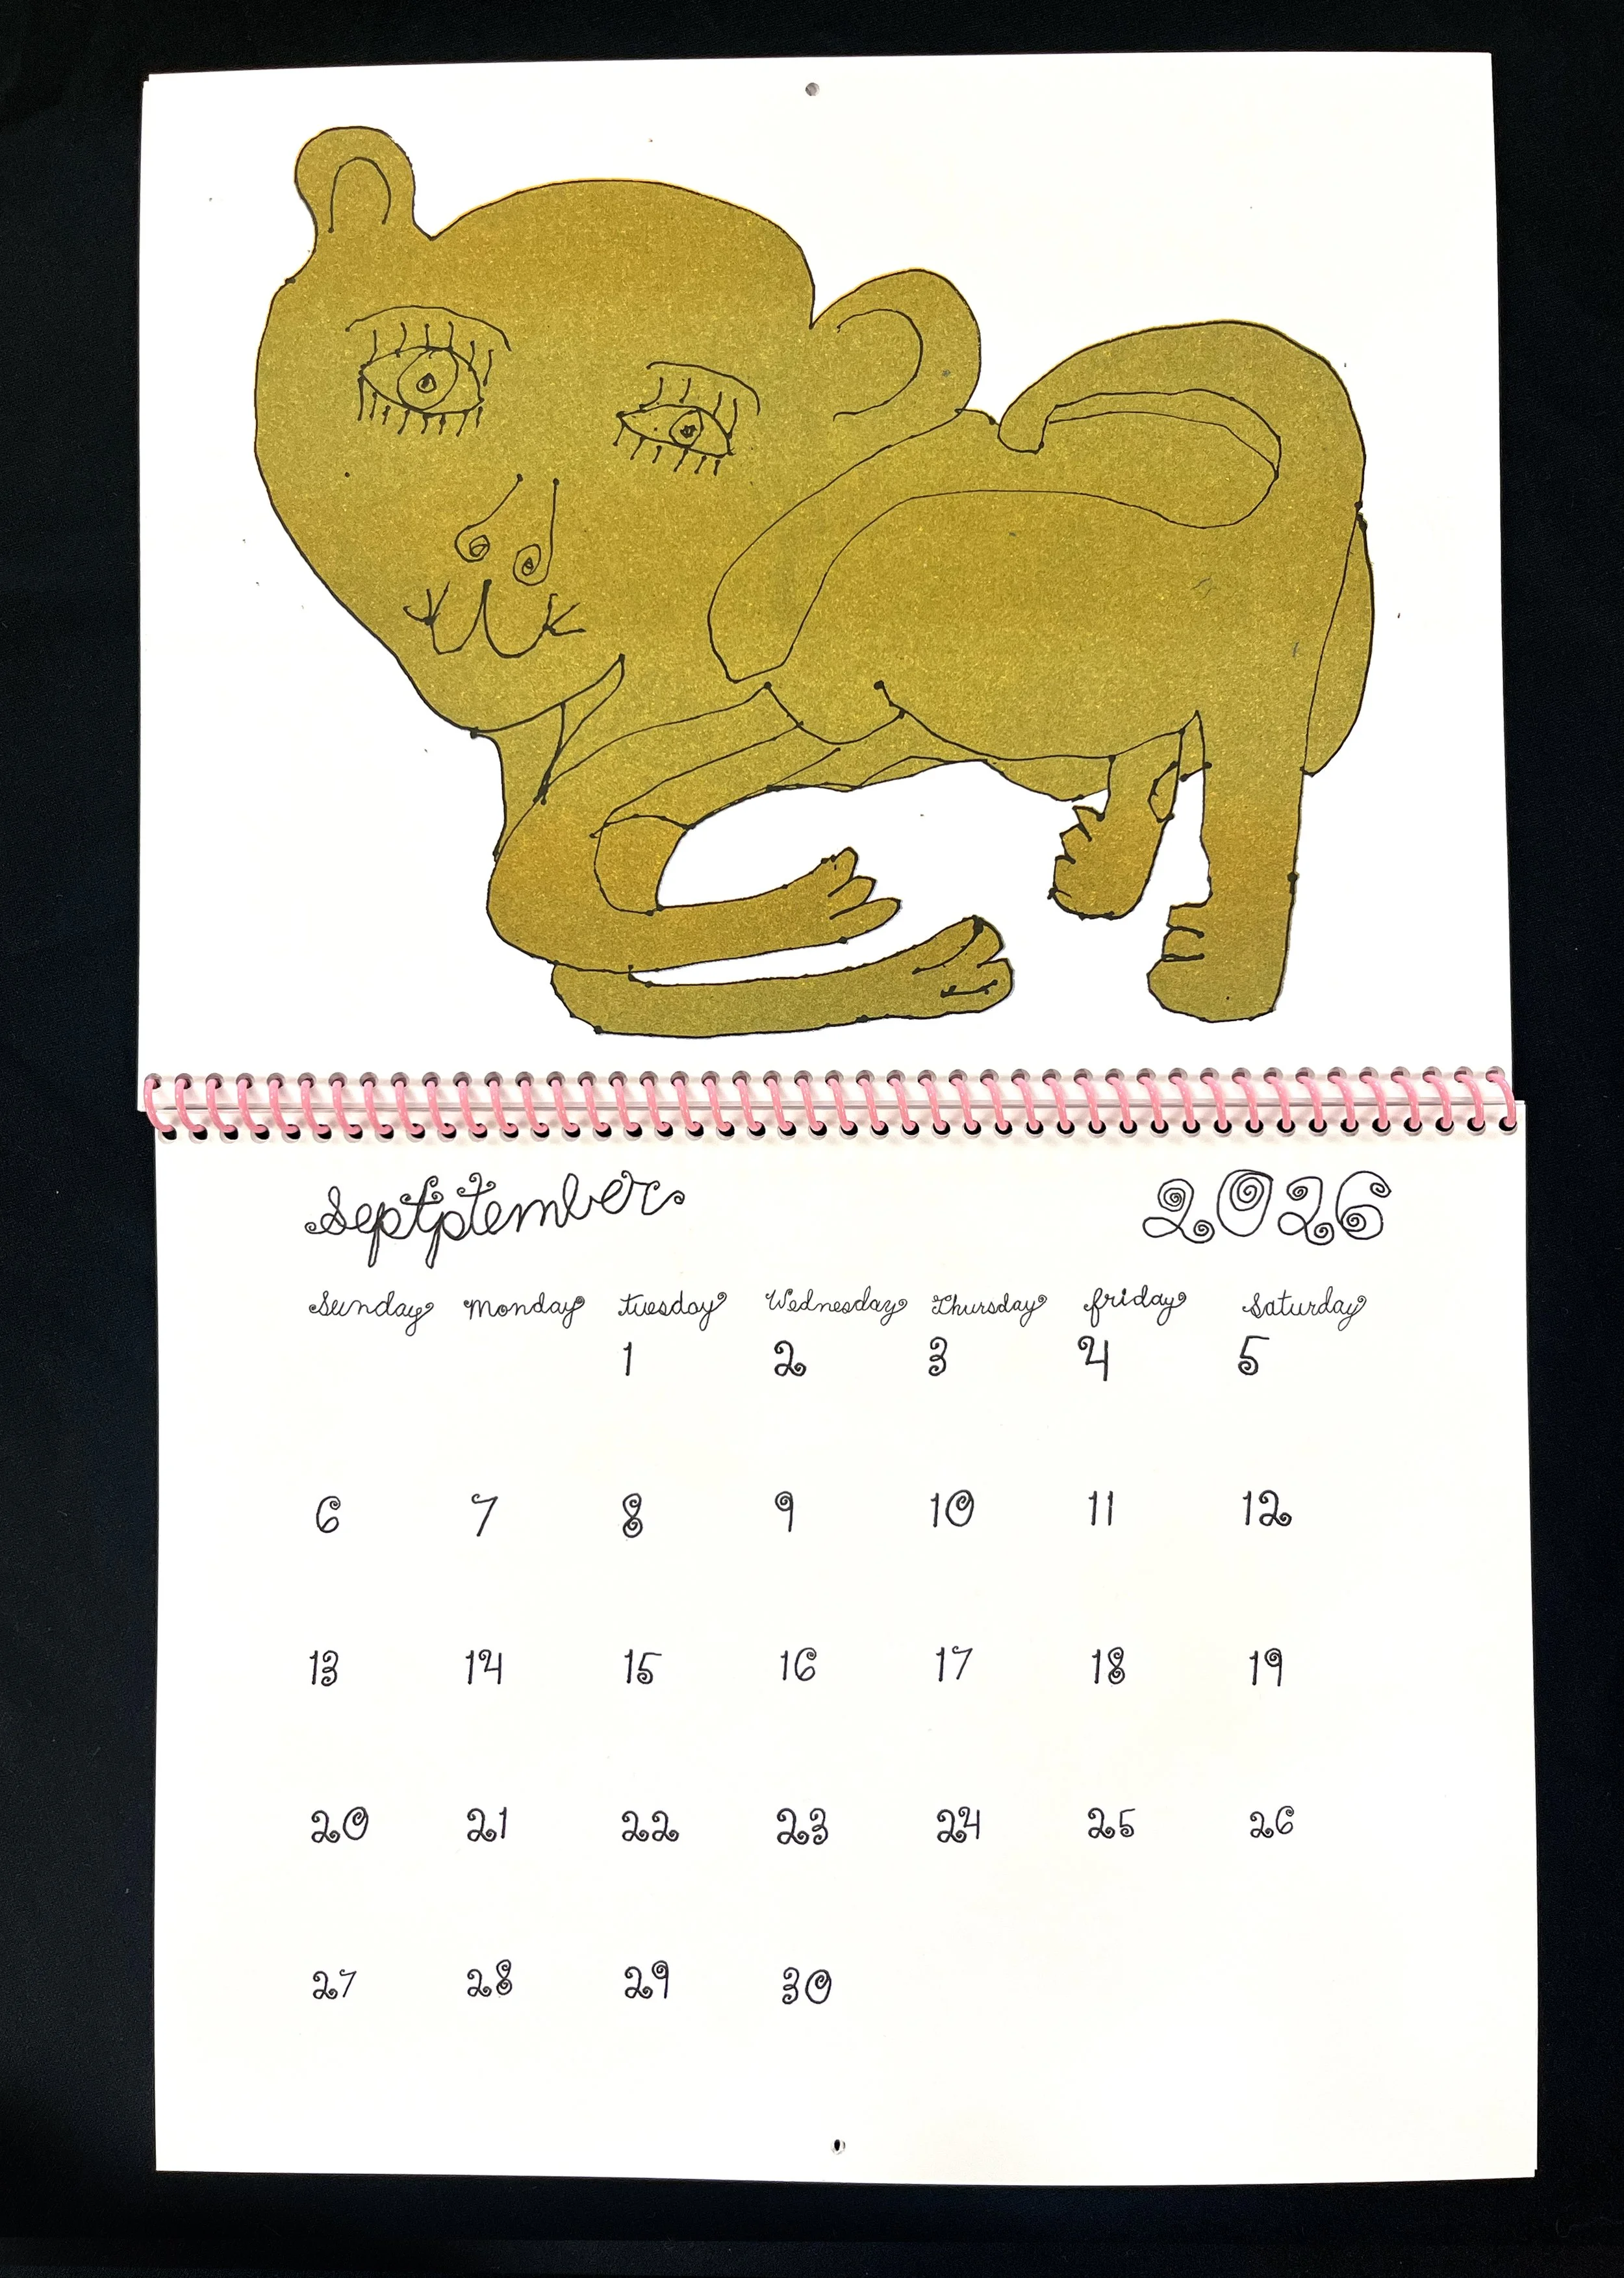 Septptember 2026
Sunday monday tuesday Wednesday Thursday friday Saturday
1 2 3 4 5
6 7 8 9 10 11 12
13 14 15 16 17 18 19
20 21 22 23 24 25 26
27 28 29 30